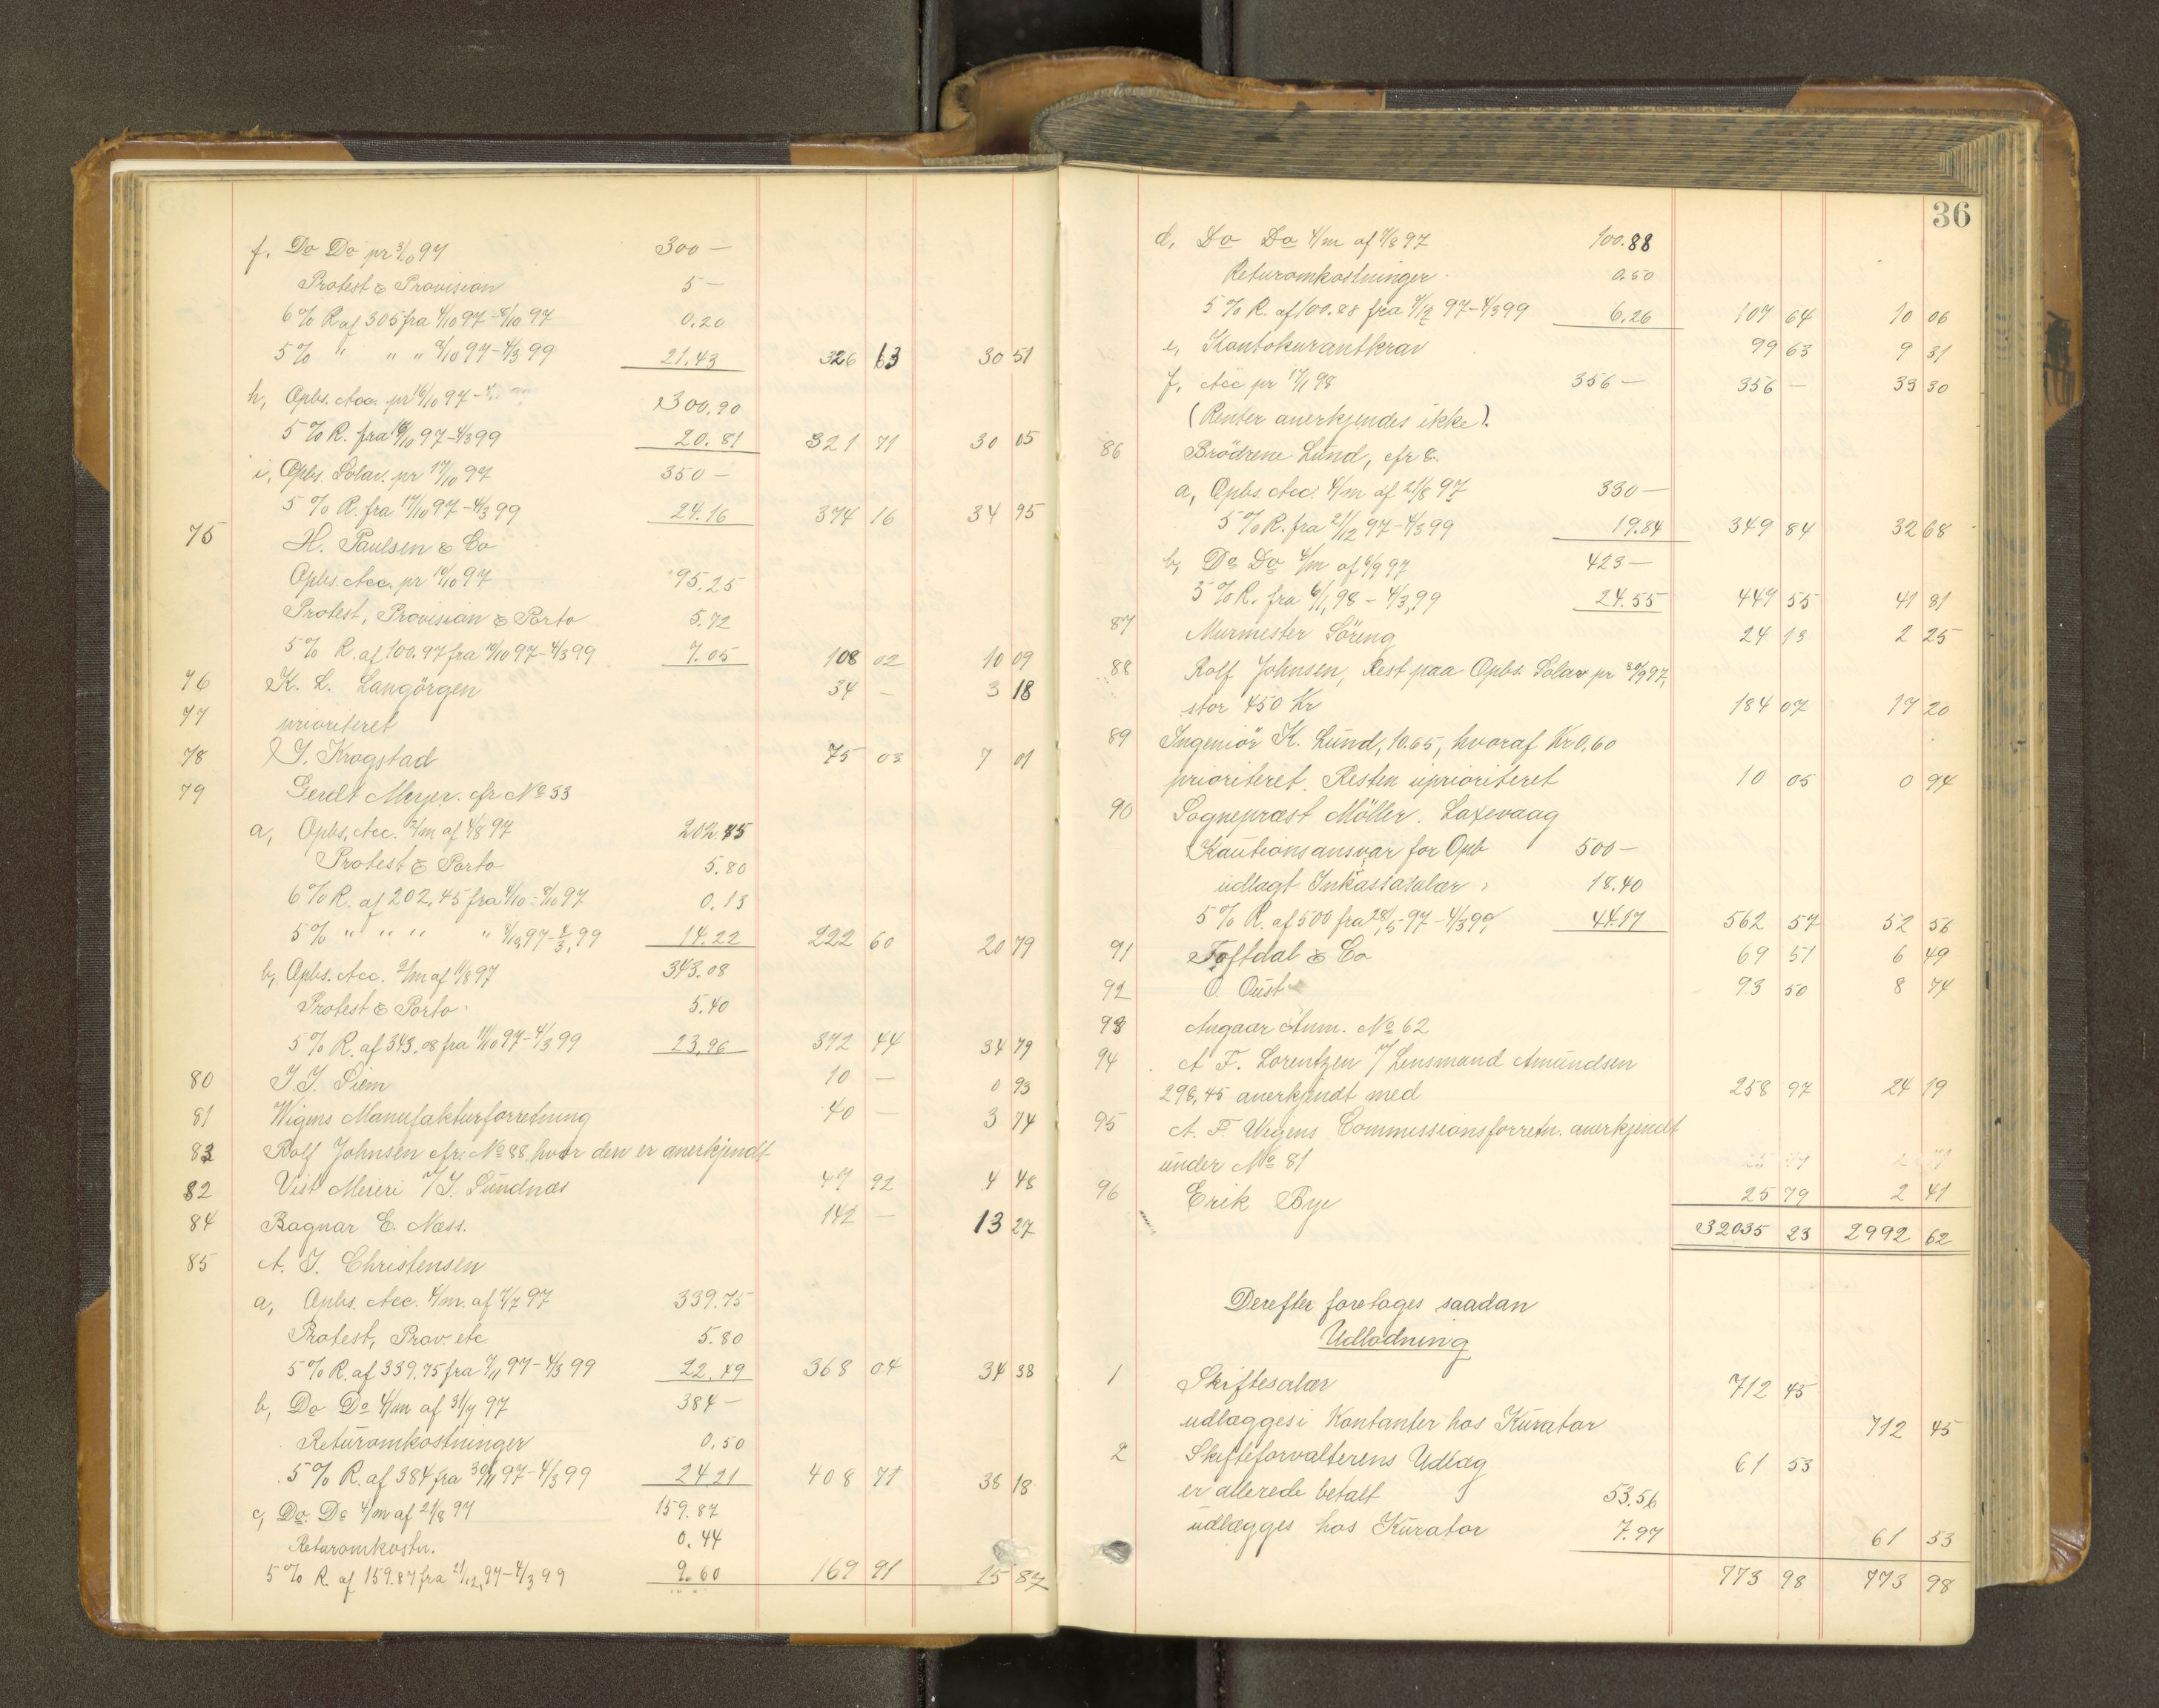 f. Do Do pr 3/10 97 300 —
Protest & Provision 5 —
6 % R af 305 fra 4/10 97 - 8/10 97 0.20
5 % " " " 8/10 97 - 4/3 99 21.43 326 63 30 51
h, Opbs. Acc. pr 16/10 97 300.90
5 % R. fra 16/10 97 - 4/3 99 20.81 321 71 30 05
i, Opbs. Solav. pr 17/10 97 350 —
5 % R. fra 17/10 97 - 4/3 99 24.16 374 16 34 95
75 H. Paulsen & Co
Opbs. Acc. pr 10/10 97 95.25
Protest, Provision & Porto 5.72
5 % R. af 100.97 fra 10/10 97 - 4/3 99 7.05 108 02 10 09
76 K. L. Langörgen 34 — 3 18
77 prioriteret
78 J. Krogstad 75 03 7 01
79 Gerdt Meyer. cfr No 33
a, Opbs. Acc. 2/m af 4/8 97 202.45
Protest & Porto 5.80
6 % R. af 202.45 fra 4/10 - 8/10 97 0.13
5 % " " " " 8/10 97 - 4/3 99 14.22 222 60 20 79
b, Opbs. Acc. 2/m af 11/8 97 343.08
Protest & Porto 5.40
5 % R. af 343.08 fra 11/10 97 - 4/3 99 23.96 372 44 34 79
80 J. J. Siem 10 — 0 93
81 Wigens Manufakturforretning 40 — 3 74
83 Rolf Johnsen cfr. No 88, hvor den er anerkjendt
82 Vist Meieri v/ J. Sundnæs 47 92 4 48
84 Ragnar E. Næss. 142 — 13 27
85 A. J. Christensen
a, Opbs. Acc. 4/m. af 7/7 97 339.75
Protest, Prov. etc. 5.80
5 % R. af 339.75 fra 7/11 97 - 4/3 99 22.49 368 04 34 38
b, Do Do 4/m af 31/7 97 384 —
Returomkostninger 0.50
5 % R. af 384 fra 30/11 97 - 4/3 99 24.21 408 71 38 18
c, Do. Do 4/m af 21/8 97 159.87
Returomkostn. 0.44
5 % R. af 159.87 fra 21/12 97 - 4/3 99 9.60 169 91 15 87
36
d, Do Do 4/m af 4/8 97 100.88
Returomkostninger 0.50
5 % R. af 100.88 fra 4/12 97 - 4/3 99 6.26 107 64 10 06
e, Kontokurantkrav 99 63 9 31
f, Acc pr 17/1 98 356 — 356 — 33 30
(Renter anerkjendes ikke).
86 Brödrene Lund, cfr 8.
a, Opbs. Acc. 4/m af 21/8 97 330 —
5 % R. fra 21/12 97 - 4/3 99 19.84 349 84 32 68
b, Do Do 4/m af 6/9 97 423 —
5 % R. fra 6/1 98 - 4/3 99 24.55 447 55 41 81
87 Murmester Söreng 24 13 2 25
88 Rolf Johnsen, Rest paa Opbs. Solav pr 30/9 97,
stor 450 Kr 184 07 17 20
89 Ingeniör K. Lund, 10.65, hvoraf Kr 0,60
prioriteret. Resten uprioriteret 10 05 0 94
90 Sognepræst Möller. Laxevaag
Kautionsansvar for Opb 500 —
udlagt Inkassosalær 18.40
5 % R. af 500 fra 28/5 97 - 4/3 99 44.17 562 57 52 56
91 Toftdal & Co 69 51 6 49
92 O. Oust 93 50 8 74
93 Angaar Anm. No 62
94 A. F. Lorentzen v/ Lensmand Amundsen
298,45 anerkjendt med 258 97 24 19
95 A. F. Wigens Commissionsforretn. anerkjendt
under No 81
96 Erik Bye 25 79 2 41
32035 23 2992 62
Derefter foretages saadan
Udlodning
1 Skiftesalær 712 45
udlægges i Kontanter hos Kurator 712 45
2 Skifteforvalterens Udlæg 61 53
er allerede betalt 53.56
udlægges hos Kurator 7.97 61 53
773 98 773 98